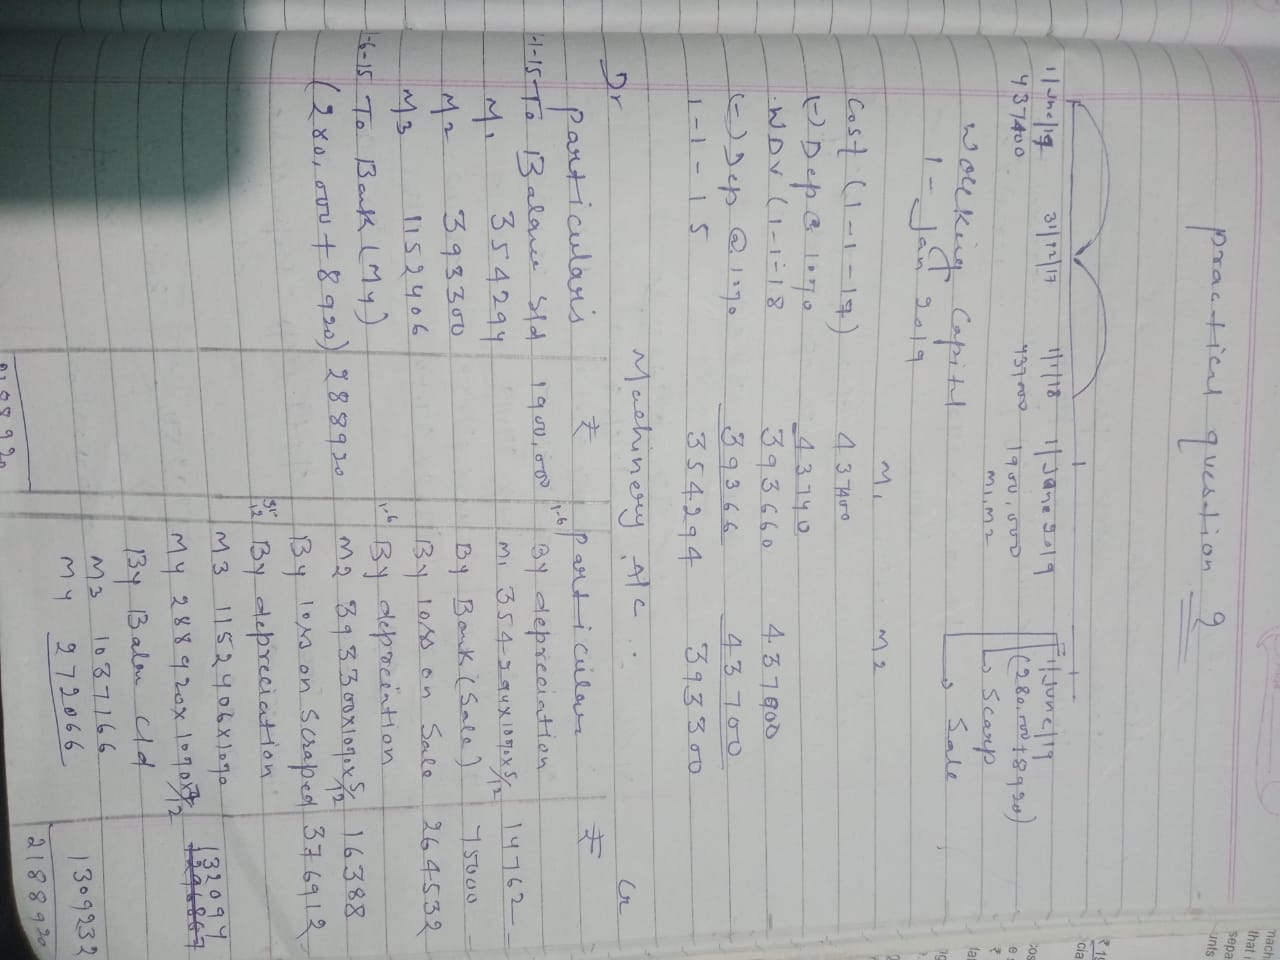 practical question 9
1/June/17 31/12/17 1/1/18 1 Jan 2019 1/June/19
437400 437000 1900,000 (280,000+8920)
M1, M2
Scarp
Sale
Working Capital
1 - Jan 2019
M1 M2
Cost (1-1-17) 437400
(-) Dep @ 10% 43740
WDV (1-1-18 393660 437000
(-) Dep @ 10% 39366 43700
1-1-15 354294 393300
Machinery A/c
Dr Cr
Particulars ₹ Particular ₹
1-1-15 To Balance b/d 1900,000 1-6 By depreciation
M1 354294 M1 354294x10%x5/12 14762
M2 393300 By Bank (Sale) 75000
M3 1152406 By loss on Sale 264532
1-6-15 To Bank (M4) 1-6 By depreciation
(280,000+8920) 288920 M2 393300x10%x5/12 16388
By loss on Scraped 376912
31-12 By depreciation
M3 1152406x10%
M4 288920x10%x7/12 132094
By Balan c/d
M3 1037166
M4 272066 1309232
2188920 2188920